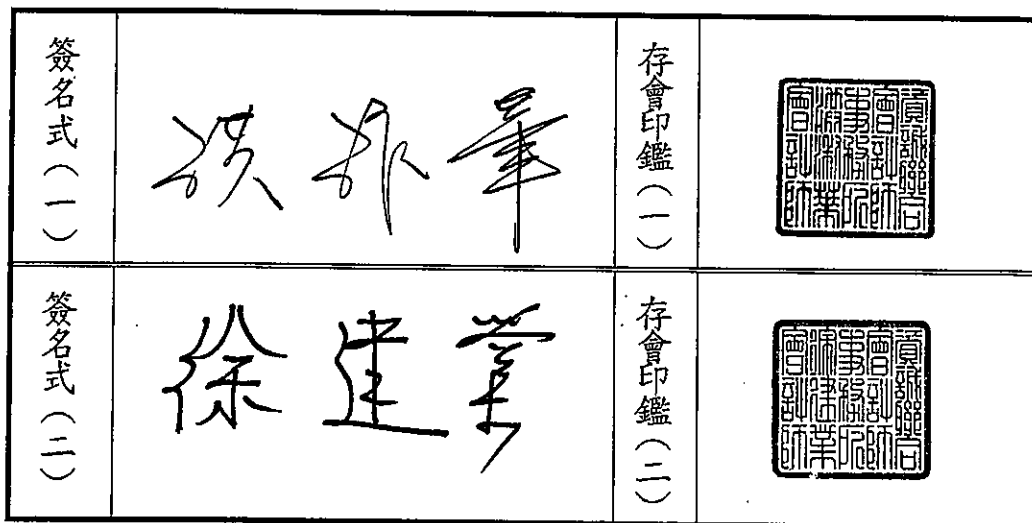 簽名式(一)
洪淑華
存會印鑑(一)
資誠聯合
會計師
事務所
洪淑華
會計師
簽名式(二)
徐建業
存會印鑑(二)
資誠聯合
會計師
事務所
徐建業
會計師